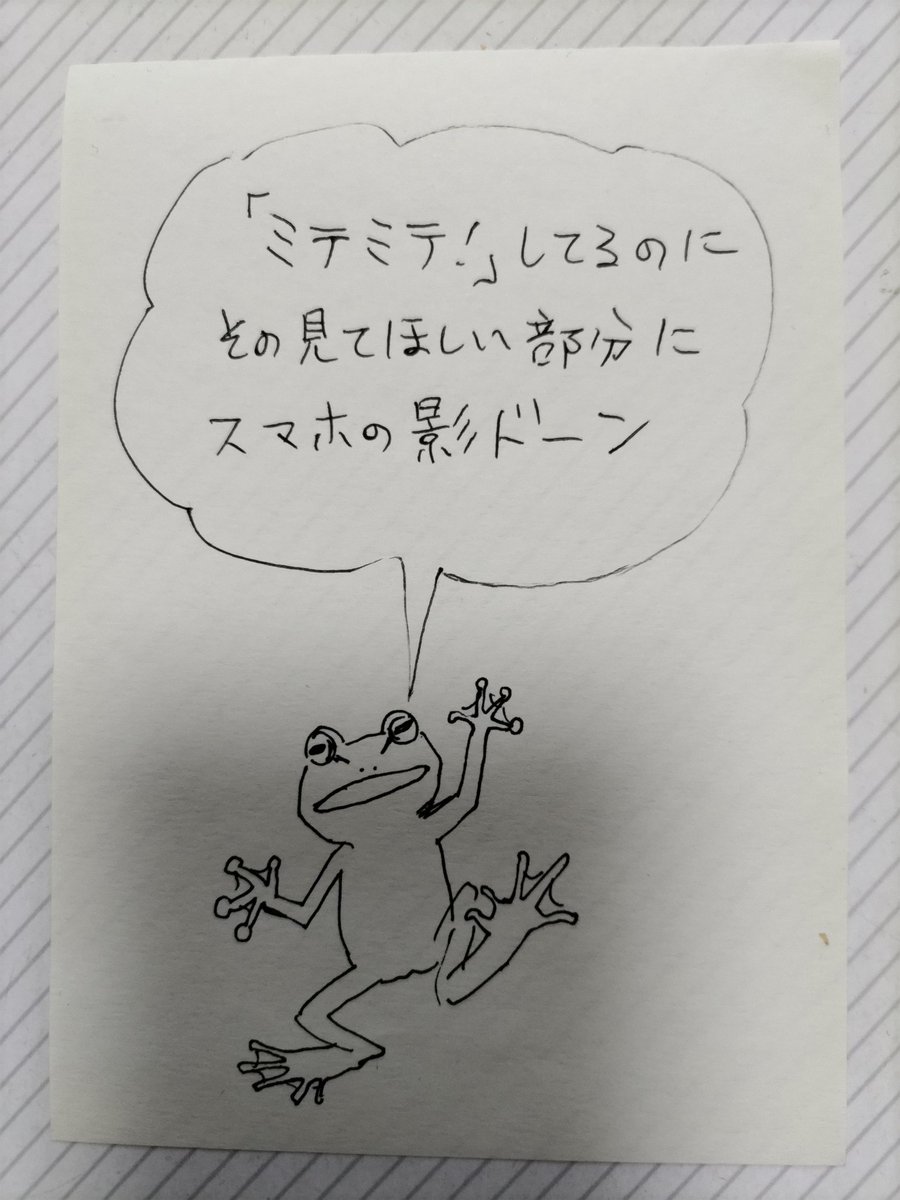 「ミテミテ!」してるのに
その見てほしい部分に
スマホの影ドーン